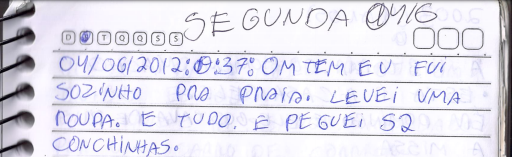 SEGUNDA 04/6
D S T Q Q S S
04/06/2012:19:37: OMTEM EU FUI
SOZINHO PRA PRAIA. LEVEI UMA
ROUPA. E TUDO. E PEGUEI 52
CONCHINHAS.